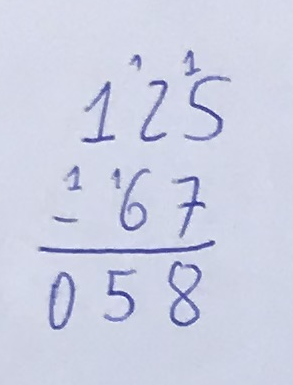 1 1
125
- 1 1 67
058